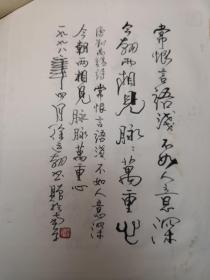 常恨言語淺不如人意深
今朝兩相見脉々萬重心
唐劉禹錫詩常恨言語淺不如人意深
今朝兩相見脉脉萬重心
一九九八年四月徐